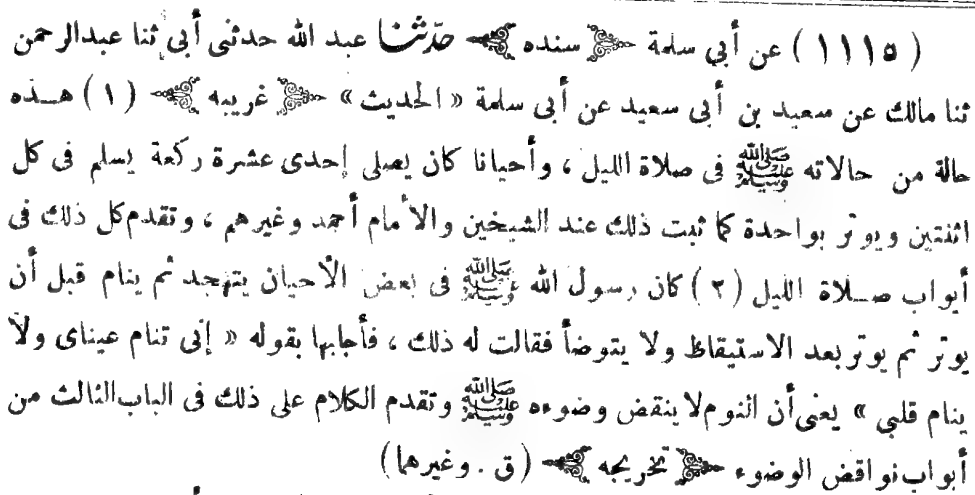 (١١١٥) عن أبي سلمة ﴿ سنده ﴾ حدثنا عبد الله حدثنى أبى ثنا عبدالرحمن
ثنا مالك عن سعيد بن أبى سعيد عن أبى سلمة «الحديث» ﴿ غريبه ﴾ (١) هـذه
حالة من حالاته ﷺ فى صلاة الليل ، وأحيانا كان يصلى إحدى عشرة ركعة يسلم فى كل
اثنتين ويوتر بواحدة كما ثبت ذلك عند الشيخين والأمام أحمد وغيرهم ، وتقدم كل ذلك فى
أبواب صـلاة الليل (٢) كان رسول الله ﷺ فى بعض الأحيان يتهجد ثم ينام قبل أن
يوتر ثم يوتر بعد الاستيقاظ ولا يتوضأ فقالت له ذلك ، فأجابها بقوله « إنى تنام عيناى ولا
ينام قلبي » يعنى أن النوم لا ينقض وضوءه ﷺ وتقدم الكلام على ذلك فى الباب الثالث من
أبواب نواقض الوضوء ﴿ تخريجه ﴾ (ق . وغيرهما)